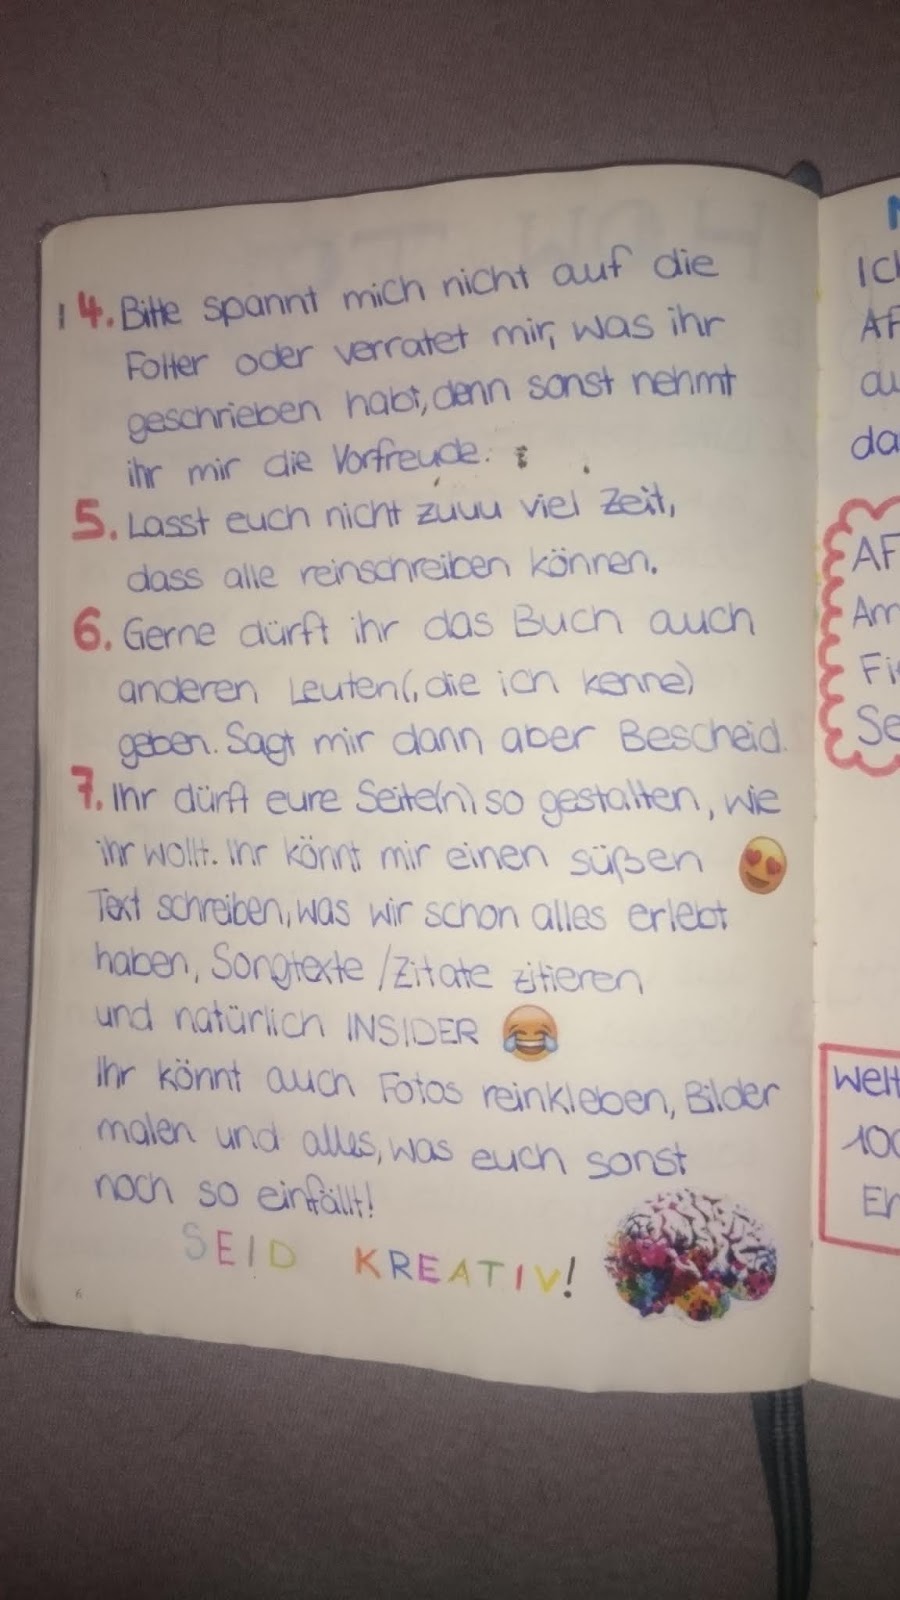 4. Bitte spannt mich nicht auf die
Folter oder verratet mir, was ihr
geschrieben habt, denn sonst nehmt
ihr mir die Vorfreude.
5. Lasst euch nicht zuuu viel Zeit,
dass alle reinschreiben können.
6. Gerne dürft ihr das Buch auch
anderen Leuten(, die ich kenne)
geben. Sagt mir dann aber Bescheid.
7. Ihr dürft eure Seite(n) so gestalten, wie
ihr wollt. Ihr könnt mir einen süßen 😍
Text schreiben, was wir schon alles erlebt
haben, Songtexte/Zitate zitieren
und natürlich INSIDER 😂
Ihr könnt auch Fotos reinkleben, Bilder
malen und alles, was euch sonst
noch so einfällt!
SEID KREATIV!
Ich
da